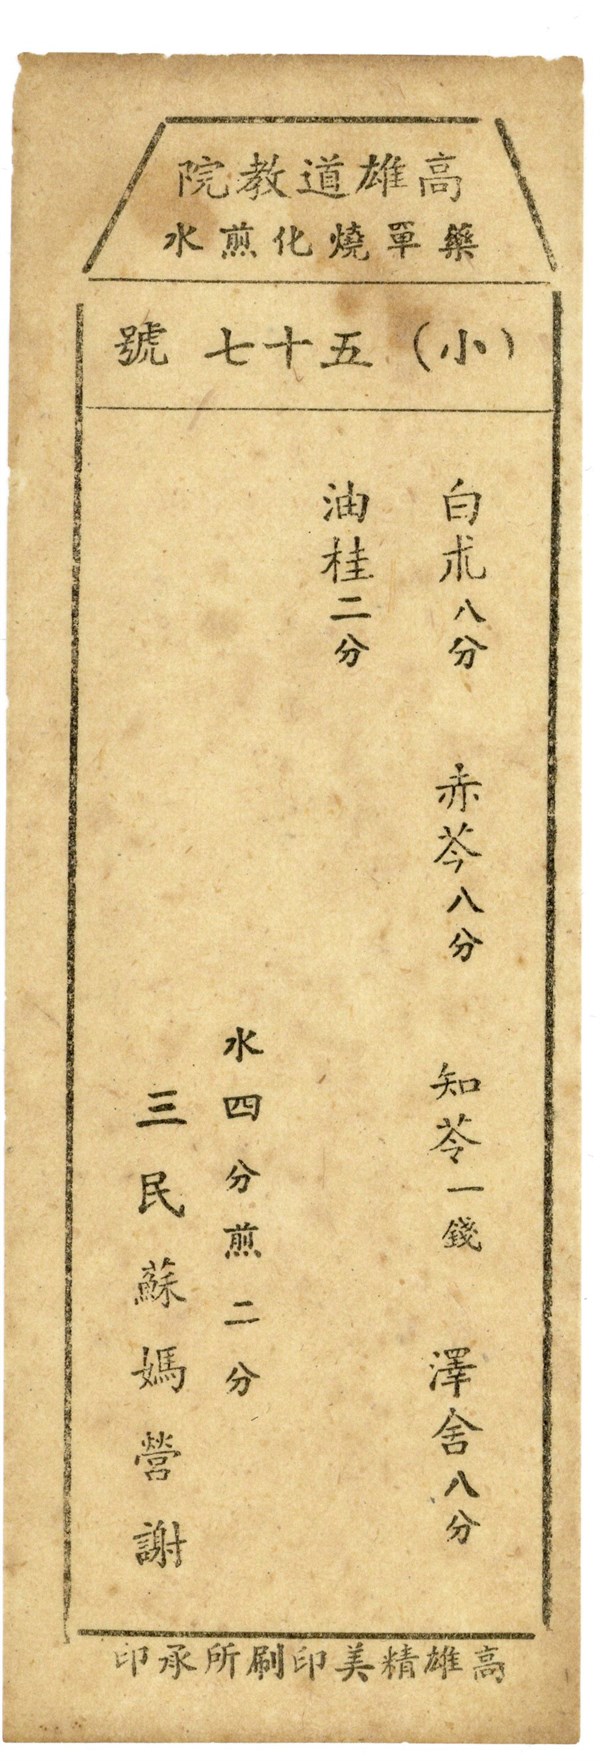 高雄道教院
藥單燒化煎水
(小) 五十七 號
白朮八分 赤芩八分 知苓一錢 澤舍八分
油桂二分
水四分煎二分
三民蘇媽營謝
高雄精美印刷所承印